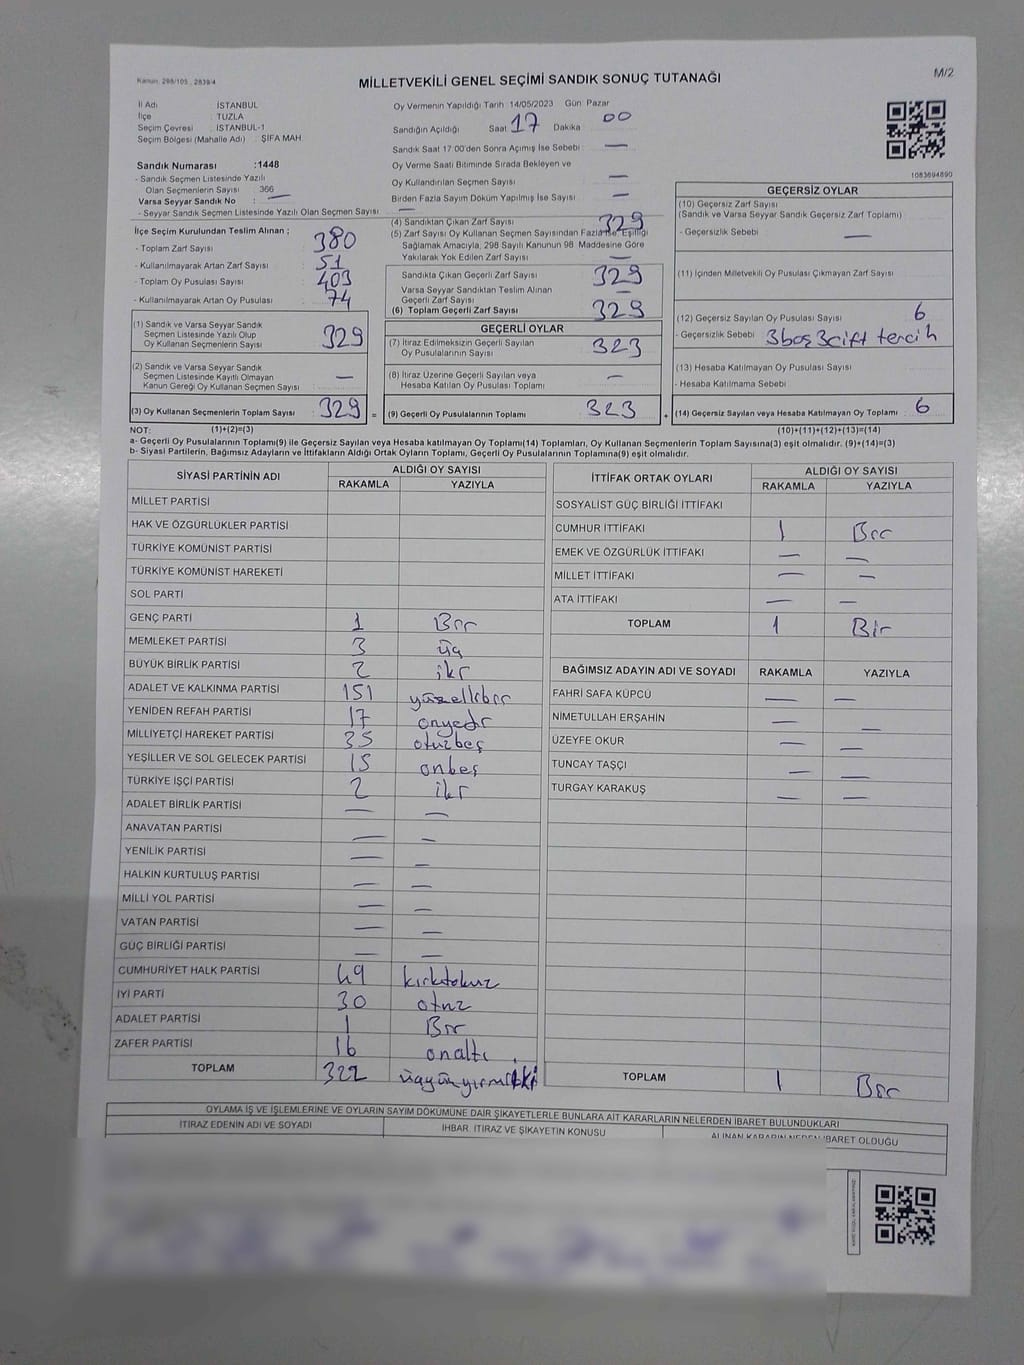 Kanun: 298/105 , 2839/4
MİLLETVEKİLİ GENEL SEÇİMİ SANDIK SONUÇ TUTANAĞI
M/2
İl Adı : İSTANBUL
İlçe : TUZLA
Seçim Çevresi : İSTANBUL-1
Seçim Bölgesi (Mahalle Adı) : ŞİFA MAH.
Sandık Numarası :1448
- Sandık Seçmen Listesinde Yazılı
Olan Seçmenlerin Sayısı : 366
Varsa Seyyar Sandık No : —
- Seyyar Sandık Seçmen Listesinde Yazılı Olan Seçmen Sayısı : —
Oy Vermenin Yapıldığı Tarih 14/05/2023 Gün Pazar
Sandığın Açıldığı Saat 17 Dakika 00
Sandık Saat 17:00'den Sonra Açılmış İse Sebebi : —
Oy Verme Saati Bitiminde Sırada Bekleyen ve
Oy Kullandırılan Seçmen Sayısı : —
Birden Fazla Sayım Döküm Yapılmış İse Sayısı : —
1083694890
İlçe Seçim Kurulundan Teslim Alınan ;
- Toplam Zarf Sayısı : 380
- Kullanılmayarak Artan Zarf Sayısı : 51
- Toplam Oy Pusulası Sayısı : 403
- Kullanılmayarak Artan Oy Pusulası : 74
(1) Sandık ve Varsa Seyyar Sandık
Seçmen Listesinde Yazılı Olup
Oy Kullanan Seçmenlerin Sayısı 329
(2) Sandık ve Varsa Seyyar Sandık
Seçmen Listesinde Kayıtlı Olmayan
Kanun Gereği Oy Kullanan Seçmen Sayısı —
(3) Oy Kullanan Seçmenlerin Toplam Sayısı : 329 =
(4) Sandıktan Çıkan Zarf Sayısı : 329
(5) Zarf Sayısı Oy Kullanan Seçmen Sayısından Fazla İse, Eşitliği
Sağlamak Amacıyla, 298 Sayılı Kanunun 98. Maddesine Göre
Yakılarak Yok Edilen Zarf Sayısı : —
Sandıkta Çıkan Geçerli Zarf Sayısı : 329
Varsa Seyyar Sandıktan Teslim Alınan
Geçerli Zarf Sayısı : —
(6) Toplam Geçerli Zarf Sayısı : 329
GEÇERLİ OYLAR
(7) İtiraz Edilmeksizin Geçerli Sayılan
Oy Pusulalarının Sayısı : 323
(8) İtiraz Üzerine Geçerli Sayılan veya
Hesaba Katılan Oy Pusulası Toplamı : —
(9) Geçerli Oy Pusulalarının Toplamı : 323 +
GEÇERSİZ OYLAR
(10) Geçersiz Zarf Sayısı
(Sandık ve Varsa Seyyar Sandık Geçersiz Zarf Toplamı) :
- Geçersizlik Sebebi : —
(11) İçinden Milletvekili Oy Pusulası Çıkmayan Zarf Sayısı :
(12) Geçersiz Sayılan Oy Pusulası Sayısı : 6
- Geçersizlik Sebebi : 3 boş 3 cift tercih
(13) Hesaba Katılmayan Oy Pusulası Sayısı :
- Hesaba Katılmama Sebebi :
(14) Geçersiz Sayılan veya Hesaba Katılmayan Oy Toplamı : 6
NOT: (1)+(2)=(3)
(10)+(11)+(12)+(13)=(14)
a- Geçerli Oy Pusulalarının Toplamı(9) ile Geçersiz Sayılan veya Hesaba katılmayan Oy Toplamı(14) Toplamları, Oy Kullanan Seçmenlerin Toplam Sayısına(3) eşit olmalıdır. (9)+(14)=(3)
b- Siyasi Partilerin, Bağımsız Adayların ve İttifakların Aldığı Ortak Oyların Toplamı, Geçerli Oy Pusulalarının Toplamına(9) eşit olmalıdır.
SİYASİ PARTİNİN ADI ALDIĞI OY SAYISI
RAKAMLA YAZIYLA
MİLLET PARTİSİ
HAK VE ÖZGÜRLÜKLER PARTİSİ
TÜRKİYE KOMÜNİST PARTİSİ
TÜRKİYE KOMÜNİST HAREKETİ
SOL PARTİ
GENÇ PARTİ 1 Bir
MEMLEKET PARTİSİ 3 üç
BÜYÜK BİRLİK PARTİSİ 2 iki
ADALET VE KALKINMA PARTİSİ 151 yüzellibir
YENİDEN REFAH PARTİSİ 17 onyedi
MİLLİYETÇİ HAREKET PARTİSİ 35 otuzbeş
YEŞİLLER VE SOL GELECEK PARTİSİ 15 onbeş
TÜRKİYE İŞÇİ PARTİSİ 2 iki
ADALET BİRLİK PARTİSİ — —
ANAVATAN PARTİSİ — —
YENİLİK PARTİSİ — —
HALKIN KURTULUŞ PARTİSİ — —
MİLLİ YOL PARTİSİ — —
VATAN PARTİSİ — —
GÜÇ BİRLİĞİ PARTİSİ — —
CUMHURİYET HALK PARTİSİ 49 kırkdokuz
İYİ PARTİ 30 otuz
ADALET PARTİSİ 1 Bir
ZAFER PARTİSİ 16 onaltı
TOPLAM 322 üçyüzyirmiiki
İTTİFAK ORTAK OYLARI ALDIĞI OY SAYISI
RAKAMLA YAZIYLA
SOSYALİST GÜÇ BİRLİĞİ İTTİFAKI
CUMHUR İTTİFAKI 1 Bir
EMEK VE ÖZGÜRLÜK İTTİFAKI — —
MİLLET İTTİFAKI — —
ATA İTTİFAKI — —
TOPLAM 1 Bir
BAĞIMSIZ ADAYIN ADI VE SOYADI RAKAMLA YAZIYLA
FAHRİ SAFA KÜPCÜ — —
NİMETULLAH ERŞAHİN — —
ÜZEYFE OKUR — —
TUNCAY TAŞÇI — —
TURGAY KARAKUŞ — —
TOPLAM 1 Bir
OYLAMA İŞ VE İŞLEMLERİNE VE OYLARIN SAYIM DÖKÜMÜNE DAİR ŞİKAYETLERLE BUNLARA AİT KARARLARIN NELERDEN İBARET BULUNDUKLARI
İTİRAZ EDENİN ADI VE SOYADI İHBAR, İTİRAZ VE ŞİKAYETİN KONUSU ALINAN KARARIN NEDEN İBARET OLDUĞU